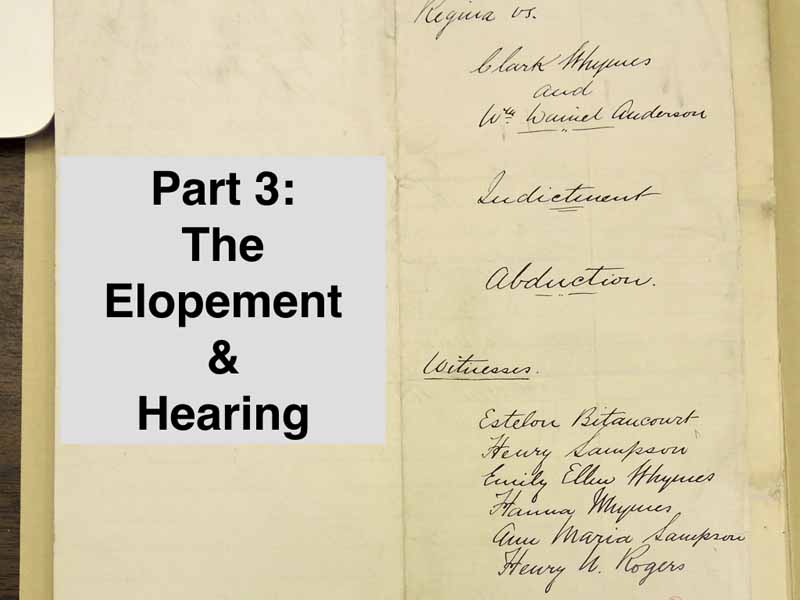 Regina vs.
Clark Whymes
and
Wm Daniel Anderson
Indictment
Abduction.
Witnesses.
Estelon Bitancourt
Henry Sampson
Emily Ellen Whymes
Hanna Whymes
Ann Maria Sampson
Henry N. Rogers
Part 3:
The
Elopement
&
Hearing